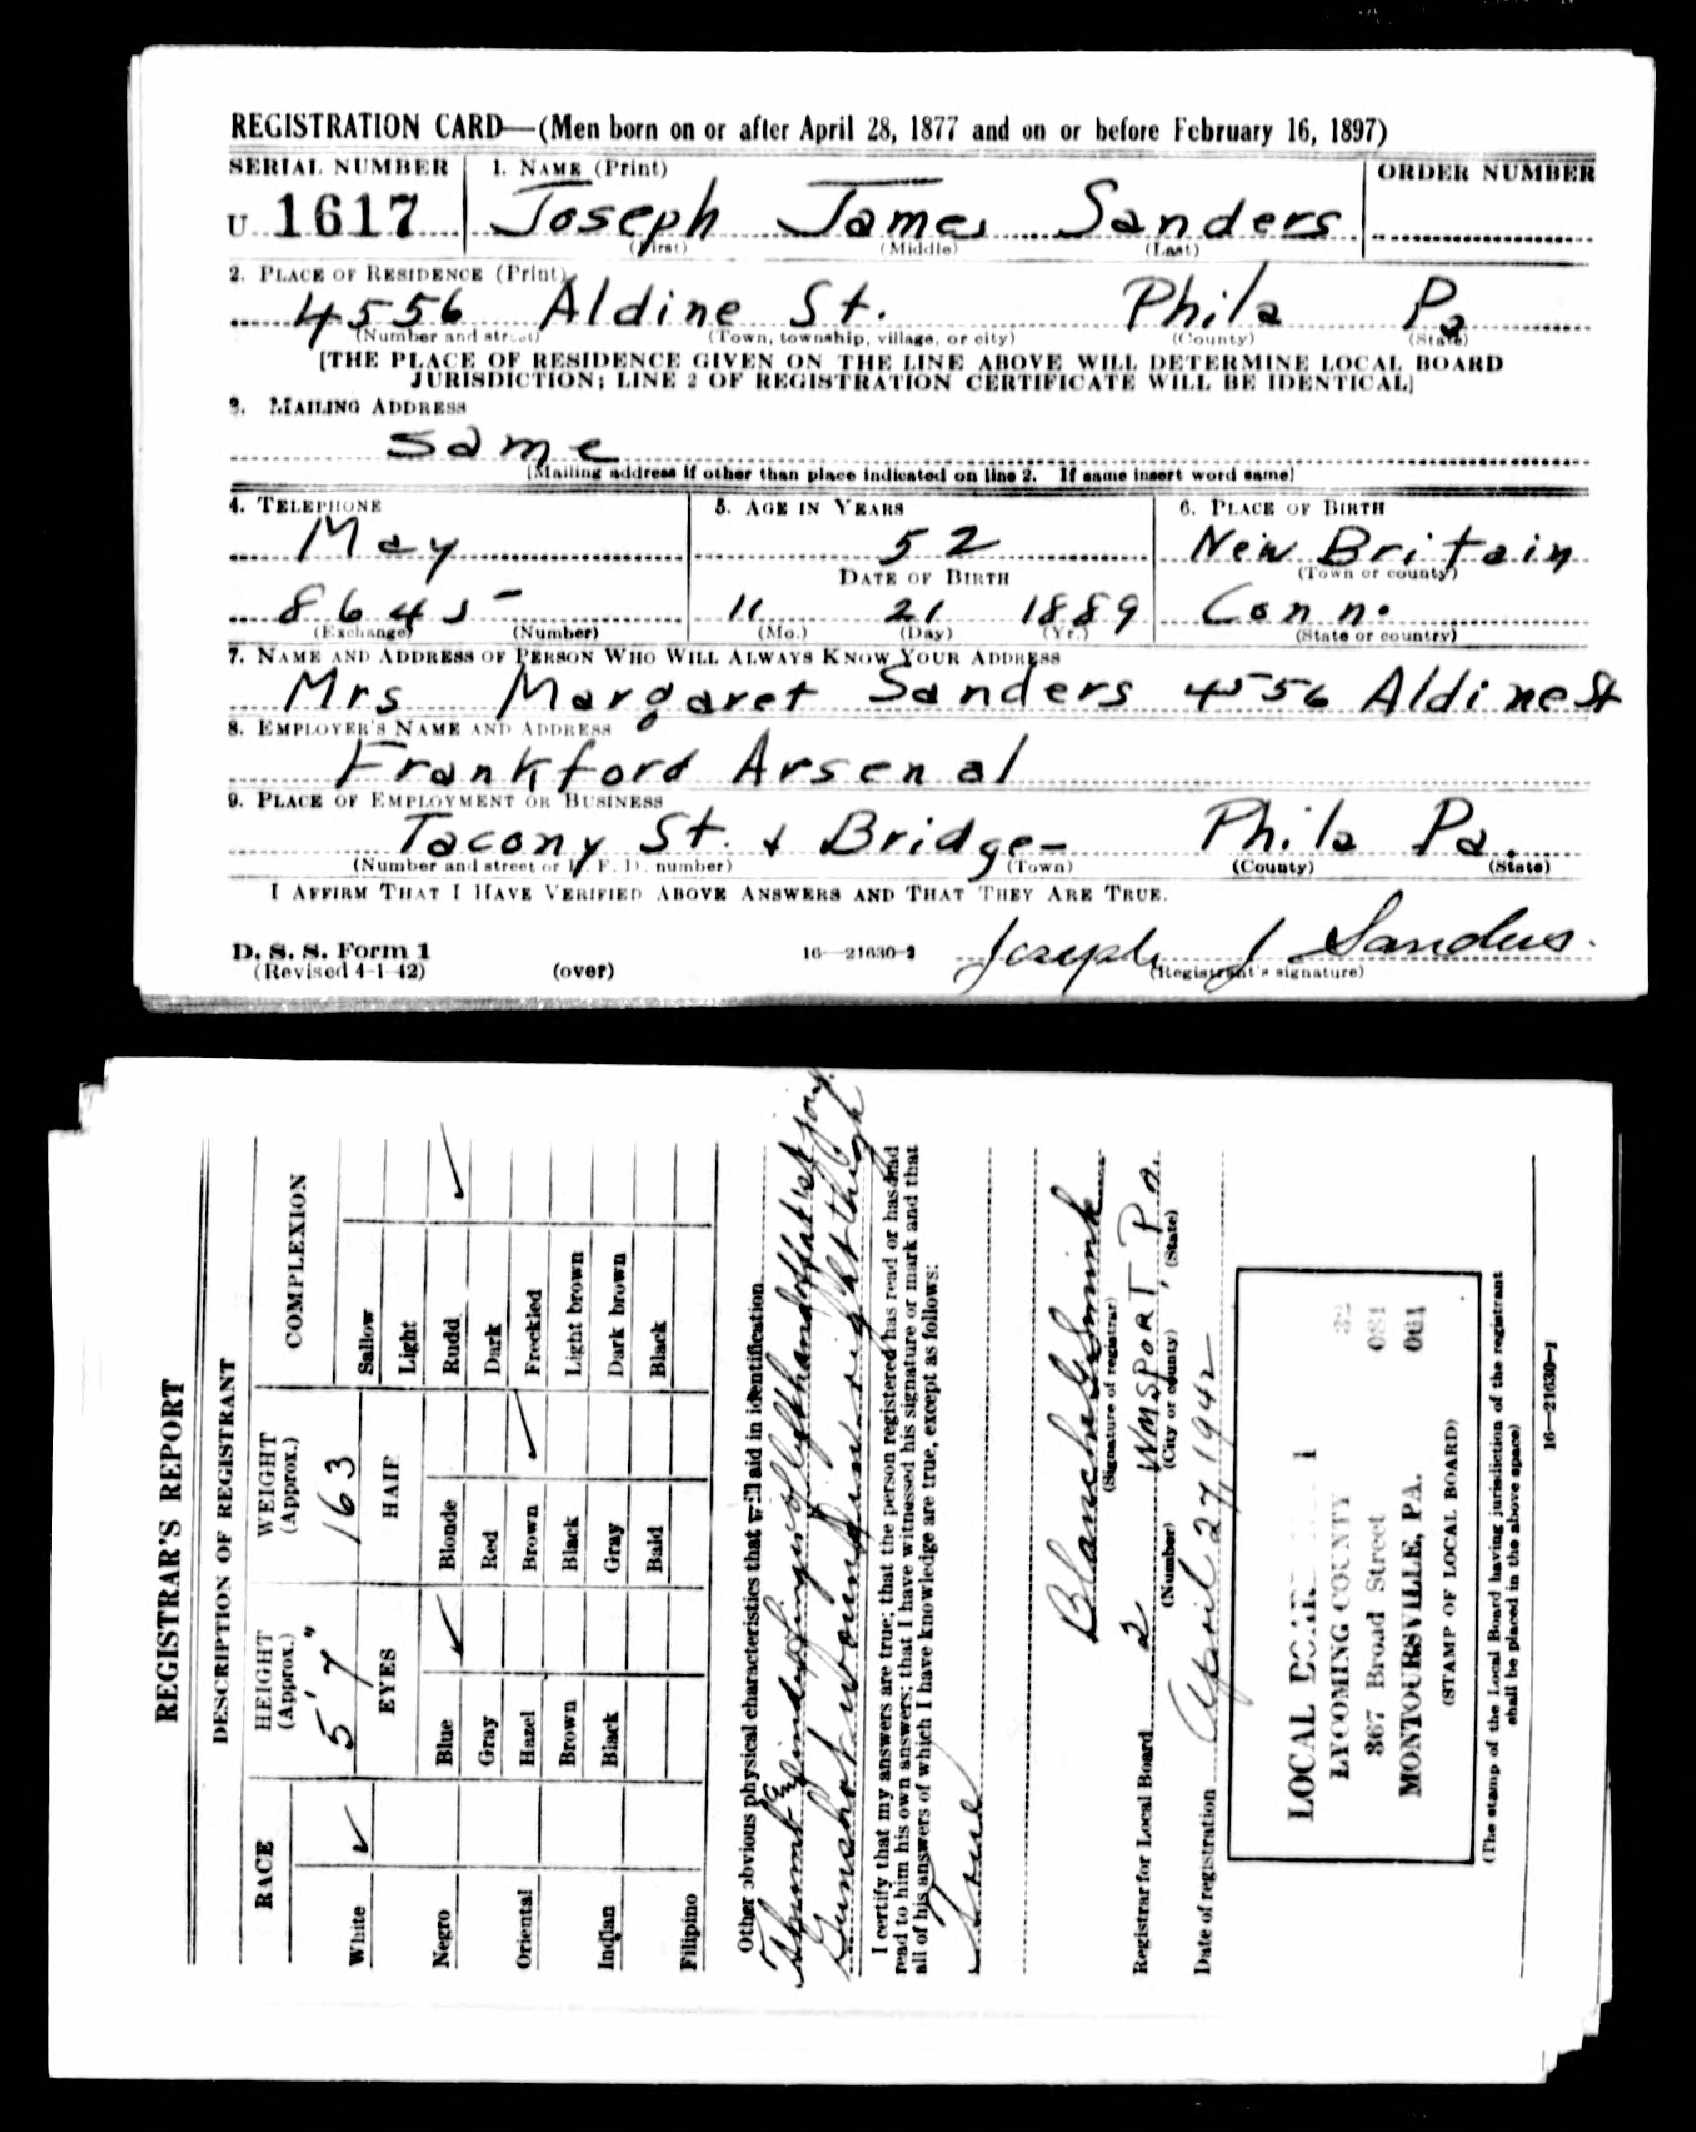 REGISTRATION CARD—(Men born on or after April 28, 1877 and on or before February 16, 1897)
SERIAL NUMBER 1. NAME (Print) ORDER NUMBER
U 1617 Joseph James Sanders
(First) (Middle) (Last)
2. PLACE OF RESIDENCE (Print)
4556 Aldine St. Phila Pa
(Number and street) (Town, township, village, or city) (County) (State)
[THE PLACE OF RESIDENCE GIVEN ON THE LINE ABOVE WILL DETERMINE LOCAL BOARD
JURISDICTION; LINE 2 OF REGISTRATION CERTIFICATE WILL BE IDENTICAL]
3. MAILING ADDRESS
same
[Mailing address if other than place indicated on line 2. If same insert word same]
4. TELEPHONE 5. AGE IN YEARS 6. PLACE OF BIRTH
May 52 New Britain
DATE OF BIRTH (Town or county)
8645 11 21 1889 Conn.
(Exchange) (Number) (Mo.) (Day) (Yr.) (State or country)
7. NAME AND ADDRESS OF PERSON WHO WILL ALWAYS KNOW YOUR ADDRESS
Mrs Margaret Sanders 4556 Aldine St
8. EMPLOYER'S NAME AND ADDRESS
Frankford Arsenal
9. PLACE OF EMPLOYMENT OR BUSINESS
Tacony St. & Bridge- Phila Pa.
(Number and street or R. F. D. number) (Town) (County) (State)
I AFFIRM THAT I HAVE VERIFIED ABOVE ANSWERS AND THAT THEY ARE TRUE.
D. S. S. Form 1
(Revised 4-1-42) (over) 16—21630-2 Joseph J Sanders.
(Registrant's signature)
REGISTRAR'S REPORT
DESCRIPTION OF REGISTRANT
RACE HEIGHT (Approx.) WEIGHT (Approx.) COMPLEXION
5' 7" 163
EYES HAIR
White ✓ Sallow
Light
Negro Blue ✓ Blonde Rudd ✓
Gray Red Dark
Oriental Hazel Brown ✓ Freckled
Brown Black Light brown
Indian Black Gray Dark brown
Bald Black
Filipino
Other obvious physical characteristics that will aid in identification
Thumb & index finger of left hand off at 1st joint.
Gunshot wound in right thigh
I certify that my answers are true; that the person registered has read or has had
read to him his own answers; that I have witnessed his signature or mark and that
all of his answers of which I have knowledge are true, except as follows:
True
Blanche G Smink
(Signature of registrar)
Registrar for Local Board 2 WMSPORT, Pa.
(Number) (City or county) (State)
Date of registration April 27 1942
LOCAL BOARD 1 32
LYCOMING COUNTY 081
367 Broad Street 001
MONTOURSVILLE, PA.
(STAMP OF LOCAL BOARD)
(The stamp of the Local Board having jurisdiction of the registrant
shall be placed in the above space)
16—21630-1